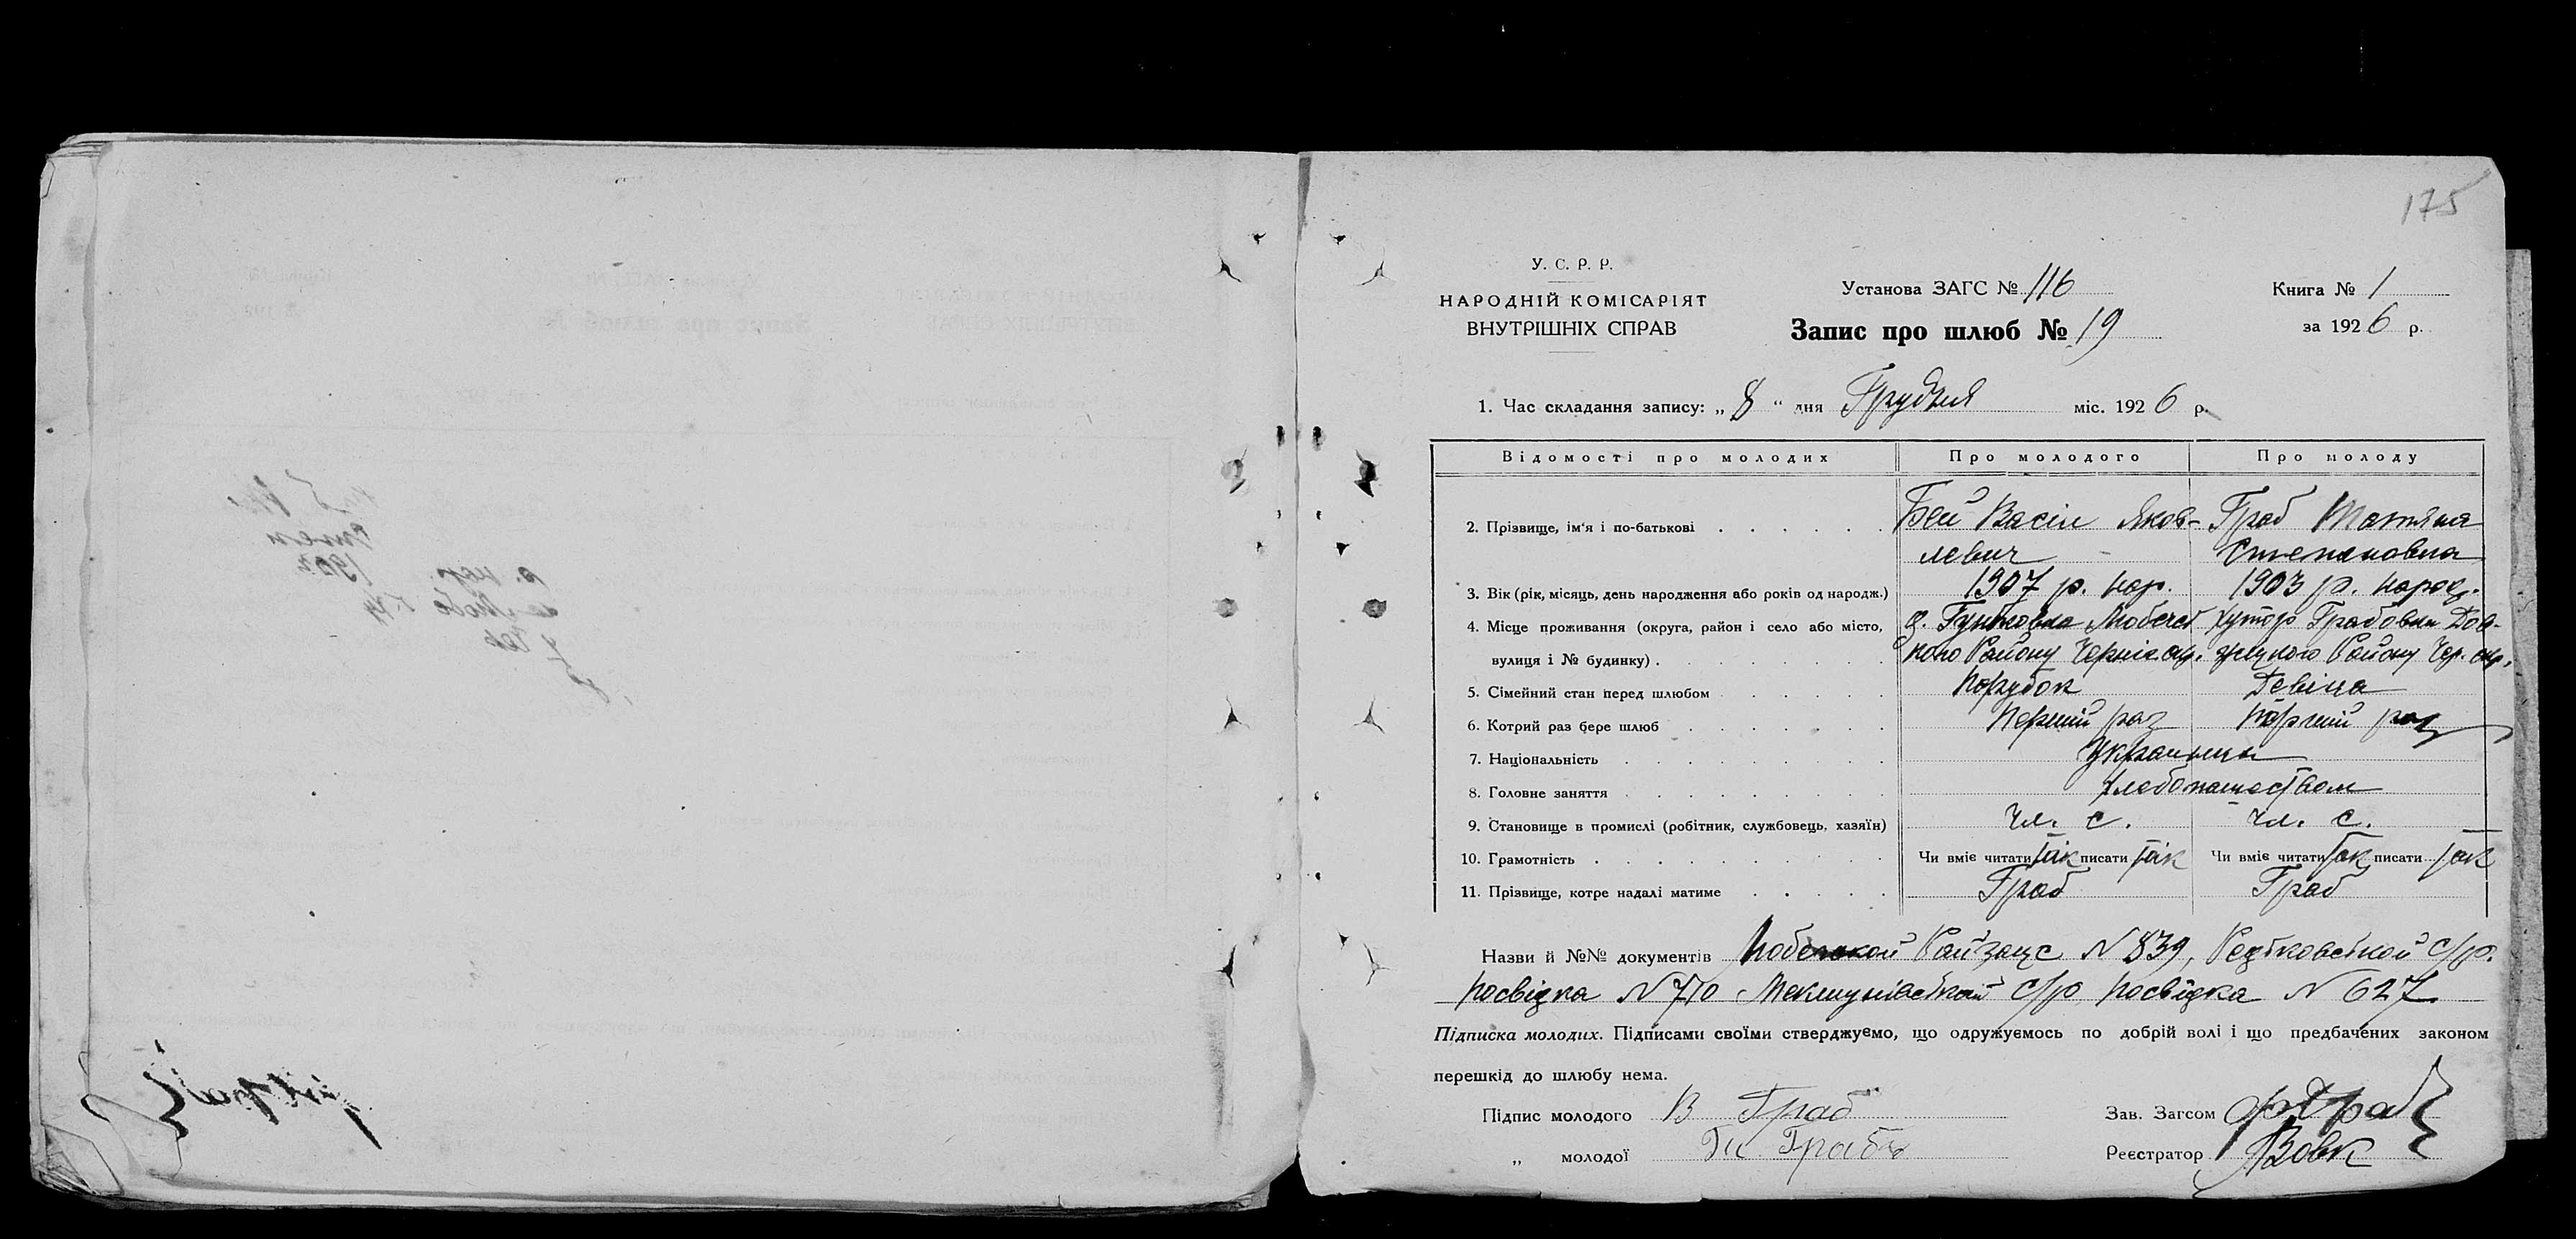 175
У. С. Р. Р.
НАРОДНІЙ КОМІСАРІЯТ
ВНУТРІШНІХ СПРАВ
Установа ЗАГС № 116
Запис про шлюб № 19
Книга № 1
за 1926 р.
1. Час складання запису: „ 8 “ дня Грудня міс. 1926 р.
Відомості про молодих Про молодого Про молоду
2. Прізвище, ім'я і по-батькові Бей Васіл Яков- Граб Татяна
левич Степановна
3. Вік (рік, місяць, день народження або років од народж.) 1907 р. нар. 1903 р. народ.
4. Місце проживання (округа, район і село або місто, хутор Грабовки
вулиця і № будинку) Району Черніг. окр. Району Чер. окр.
5. Сімейний стан перед шлюбом Парубок Девіца
6. Котрий раз бере шлюб Перший раз Перший раз
7. Національність Украинци
8. Головне заняття хлебопашеством
9. Становище в промислі (робітник, службовець, хазяїн) чл. с. чл. с.
10. Грамотність Чи вміє читати так писати так Чи вміє читати так писати так
11. Прізвище, котре надалі матиме Граб Граб
Назви й №№ документів Райзагс N 839, с/р.
посвідка N 770 с/р посвідка N 627
Підписка молодих. Підписами своїми стверджуємо, що одружуємось по добрій волі і що предбачених законом
перешкід до шлюбу нема.
Підпис молодого В Граб
„ молодої Граб
Зав. Загсом
Реєстратор Вовк